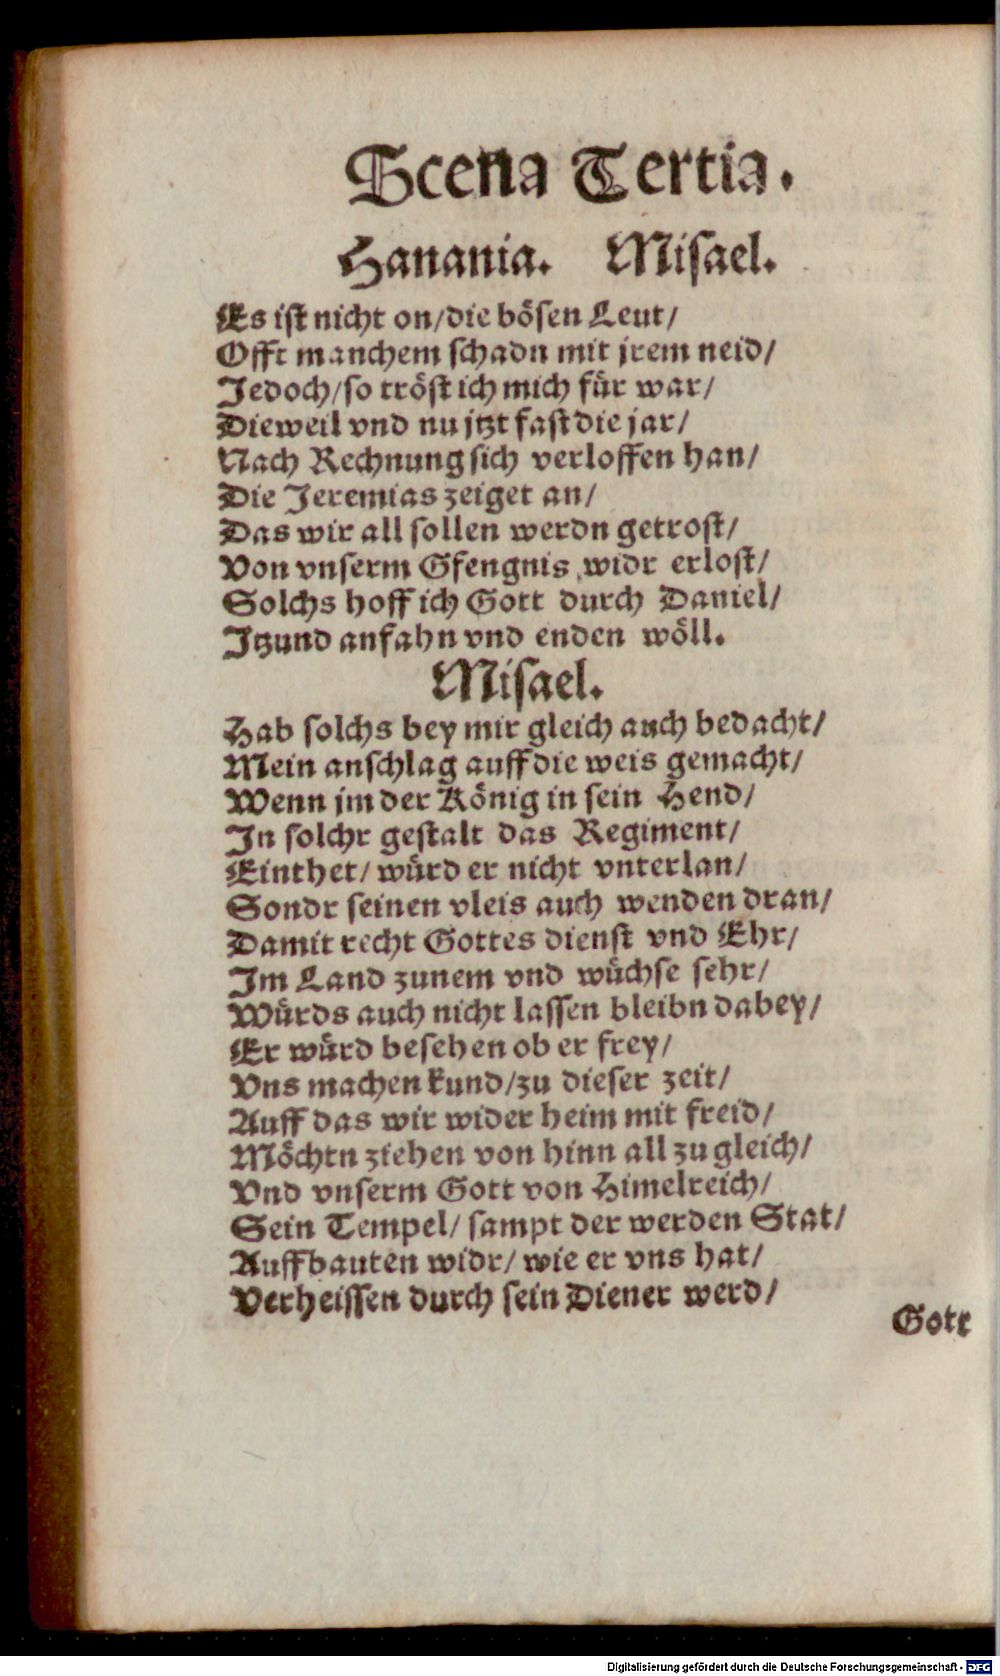 Scena Tertia.
Hanania. Misael.
Es ist nicht on/die bösen Leut/
Offt manchem schadn mit jrem neid/
Jedoch/so tröst ich mich für war/
Dieweil vnd nu jtzt fast die jar/
Nach Rechnung sich verloffen han/
Die Jeremias zeiget an/
Das wir all sollen werdn getrost/
Von vnserm Gfengnis widr erlost/
Solchs hoff ich Gott durch Daniel/
Jtzund anfahn vnd enden wöll.
Misael.
Hab solchs bey mir gleich auch bedacht/
Mein anschlag auff die weis gemacht/
Wenn jm der König in sein Hend/
In solchr gestalt das Regiment/
Einthet/ würd er nicht vnterlan/
Sondr seinen vleis auch wenden dran/
Damit recht Gottes dienst vnd Ehr/
Im Land zunem vnd wüchse sehr/
Würds auch nicht lassen bleibn dabey/
Er würd besehen ob er frey/
Vns machen kund/zu dieser zeit/
Auff das wir wider heim mit freid/
Möchtn ziehen von hinn all zu gleich/
Vnd vnserm Gott von Himelreich/
Sein Tempel/ sampt der werden Stat/
Auffbauten widr/ wie er vns hat/
Verheissen durch sein Diener werd/
Gott
Digitalisierung gefördert durch die Deutsche Forschungsgemeinschaft - DFG